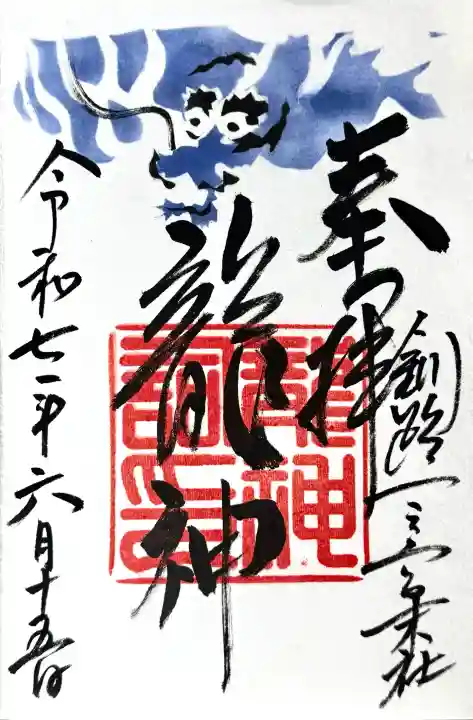 奉拝
釧路一之宮末社
龍神
龍神
令和七年六月十五日